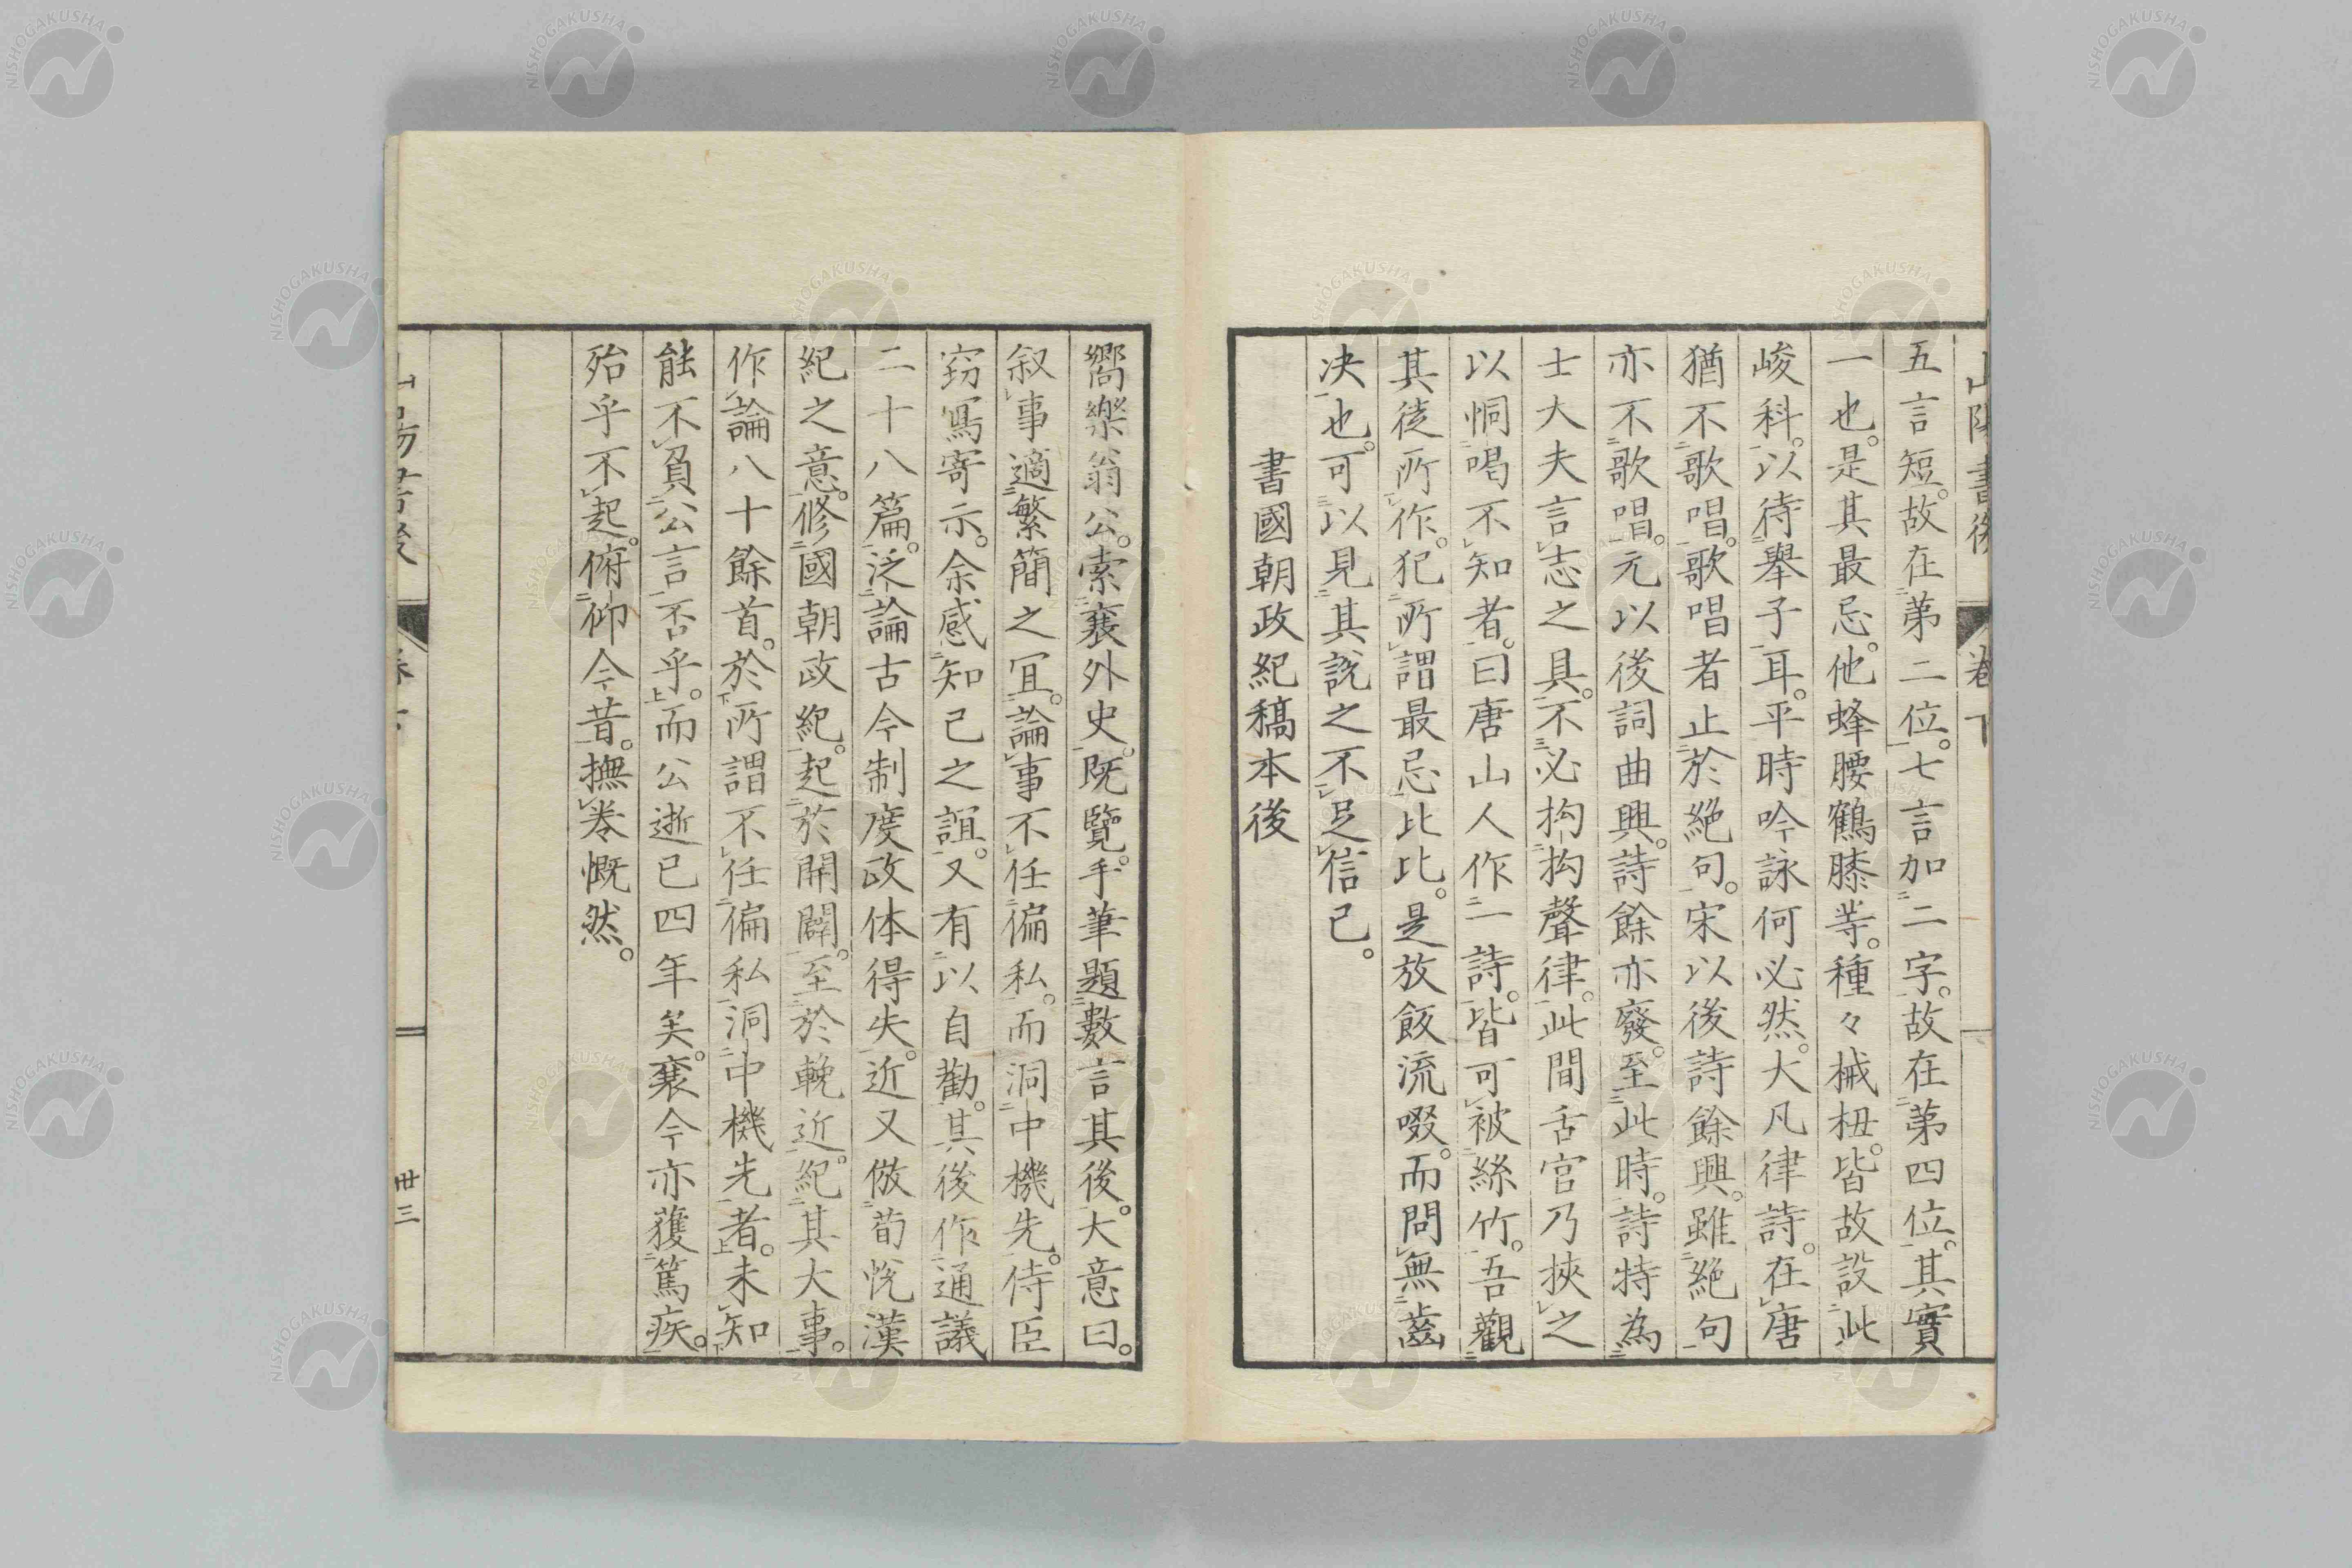 山陽書後 卷下
五言短。故在第二位。七言加二字。故在第四位。其實
一也。是其最忌。他蜂腰鶴膝等。種々械杻。皆故設此
峻科。以待舉子耳。平時吟詠何必然。大凡律詩。在唐
猶不歌唱。歌唱者止於絕句。宋以後詩餘興。雖絕句
亦不歌唱。元以後詞曲興。詩餘亦廢。至此時。詩特為
士大夫言志之具。不必拘拘聲律。此間舌官乃挾之
以恫喝不知者。曰唐山人作一詩。皆可被絲竹。吾觀
其徒所作。犯所謂最忌比比。是放飯流啜。而問無齒
决也。可以見其說之不足信已。
書國朝政紀稿本後
嚮樂翁公。索襄外史。既覽。手筆題數言其後。大意曰。
叙事適繁簡之宜。論事不任偏私。而洞中機先。侍臣
窃寫寄示。余感知己之誼。又有以自勸。其後作通議
二十八篇。泛論古今制度政体得失。近又倣荀悅漢
紀之意。修國朝政紀。起於開闢。至於輓近。紀其大事。
作論八十餘首。於所謂不任偏私洞中機先者。未知
能不負公言否乎。而公逝已四年矣。襄今亦獲篤疾。
殆乎不起。俯仰今昔。撫卷慨然。
山陽書後
卅三
NISHOGAKUSHA